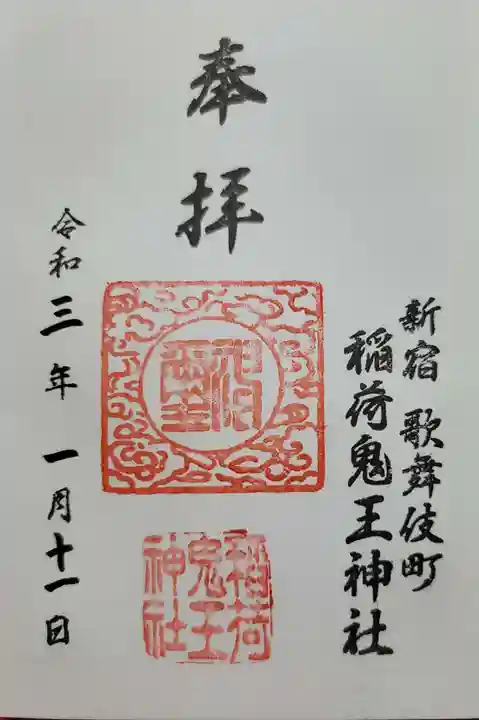 奉拝
新宿 歌舞伎町
稲荷鬼王神社
稲荷
鬼王
神社
令和三年一月十一日